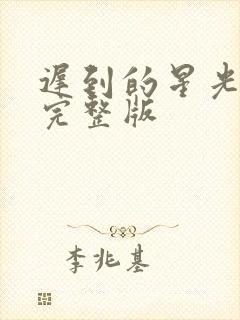 遲到的星光
完整版
李兆基